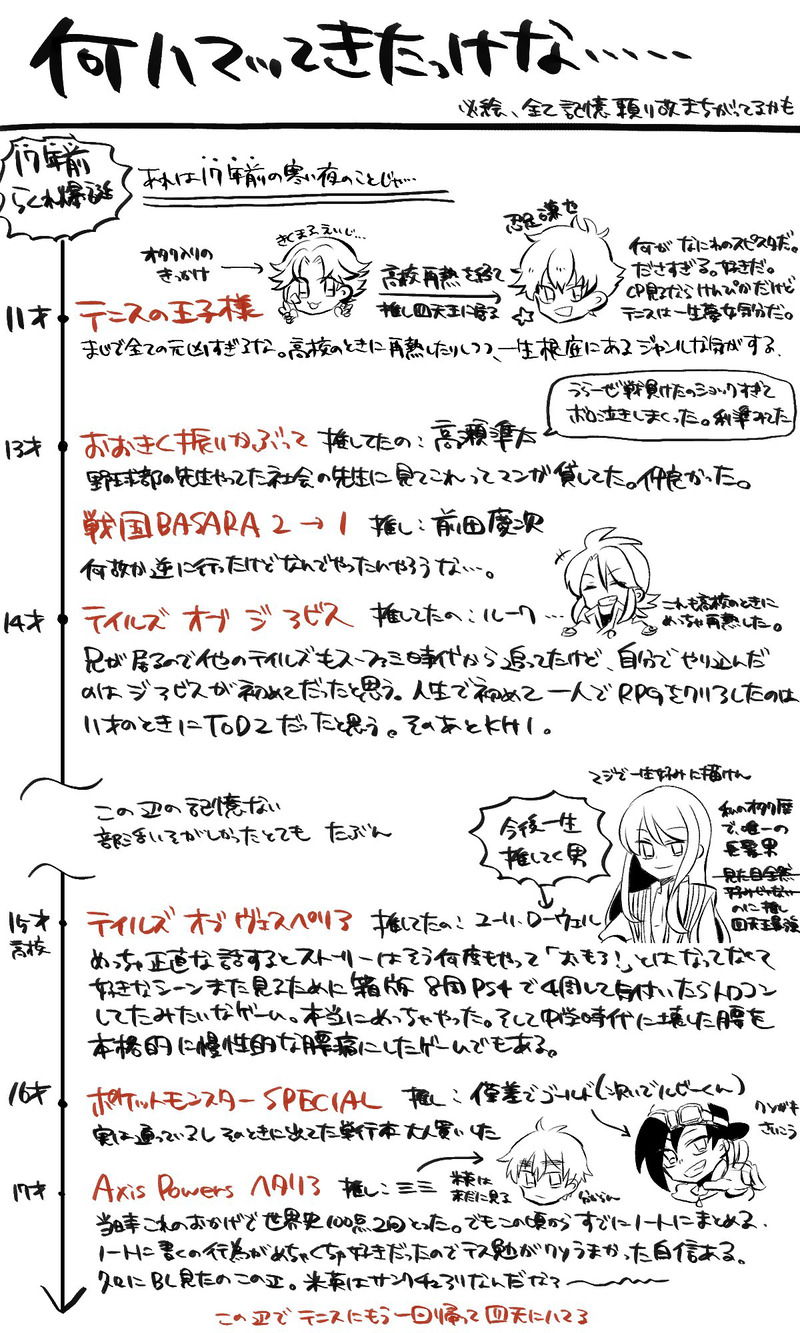 何ハマってきたっけな……
※絵、全て記憶頼り故まちがってるかも
17年前
らくれ爆誕
あれは17年前の寒い夜のことじゃ…
オタク入りの
きっかけ
きくまるえいじ…
高校再熱を経て
推し四天王に居る
忍足謙也
何がなにわのスピスタだ。
ださすぎる。好きだ。
CP見るならけんぴかだけど
テニスは一生夢女気分だ。
11才
テニスの王子様
まじで全ての元凶すぎるな。高校のときに再熱したりしつつ、一生根底にあるジャンルな気がする、
うらーぜ戦負けたのショックすぎて
ボロ泣きしまくった。利準みてた
13才
おおきく振りかぶって 推してたの:高瀬準太
野球部の先生やってた社会の先生に見てこれってマンガ貸してた。仲良かった。
戦国BASARA 2→1 推し:前田慶次
何故か逆に行ったけどなんでやったんやろうな…。
14才
テイルズ オブ ジ アビス 推してたの:ルーク…
これも高校のときに
めっちゃ再熱した。
兄が居るので他のテイルズもスーファミ時代から追ってたけど、自分でやり込んだ
のはジアビスが初めてだったと思う。人生で初めて一人でRPGをクリアしたのは
11才のときにTOD2だったと思う。そのあとKH1。
この辺の記憶ない
部活いそがしかったとても たぶん
マジで一生好みに描けん
今後一生
推してく男
私のオタク歴
で、唯一の
長髪男
見た目全然
好みじゃない
のに推し
四天王最強
15才
高校
テイルズ オブ ヴェスペリア 推してたの:ユーリ.ローウェル
めっちゃ正直な話するとストーリーはそう何度もやって「おもろ!」とはなってなくて
好きなシーンまた見るために箱版8周PS4で4周して気付いたらトロコン
してたみたいなゲーム。本当にめっちゃやった。そして中学時代に壊した腰を
本格的に慢性的な腰痛にしたゲームでもある。
16才
ポケットモンスターSPECIAL 推し:僅差でゴールド(次いでルビーくん)
実は通っているしそのときに出てた単行本大人買いした
クソガキ
さいこう
17才
Axis Powers ヘタリア 推し:ミミ
米英は
未だに見る
当時これのおかげで世界史100点2回とった。でもこの頃からすでにノートにまとめる、
ノートに書くの行為がめちゃくちゃ好きだったのでテス勉がクソうまかった自信ある。
久々にBL見たのこの辺。米英はサンクチュアリなんだな?
この辺でテニスにもう一回帰って四天にハマる